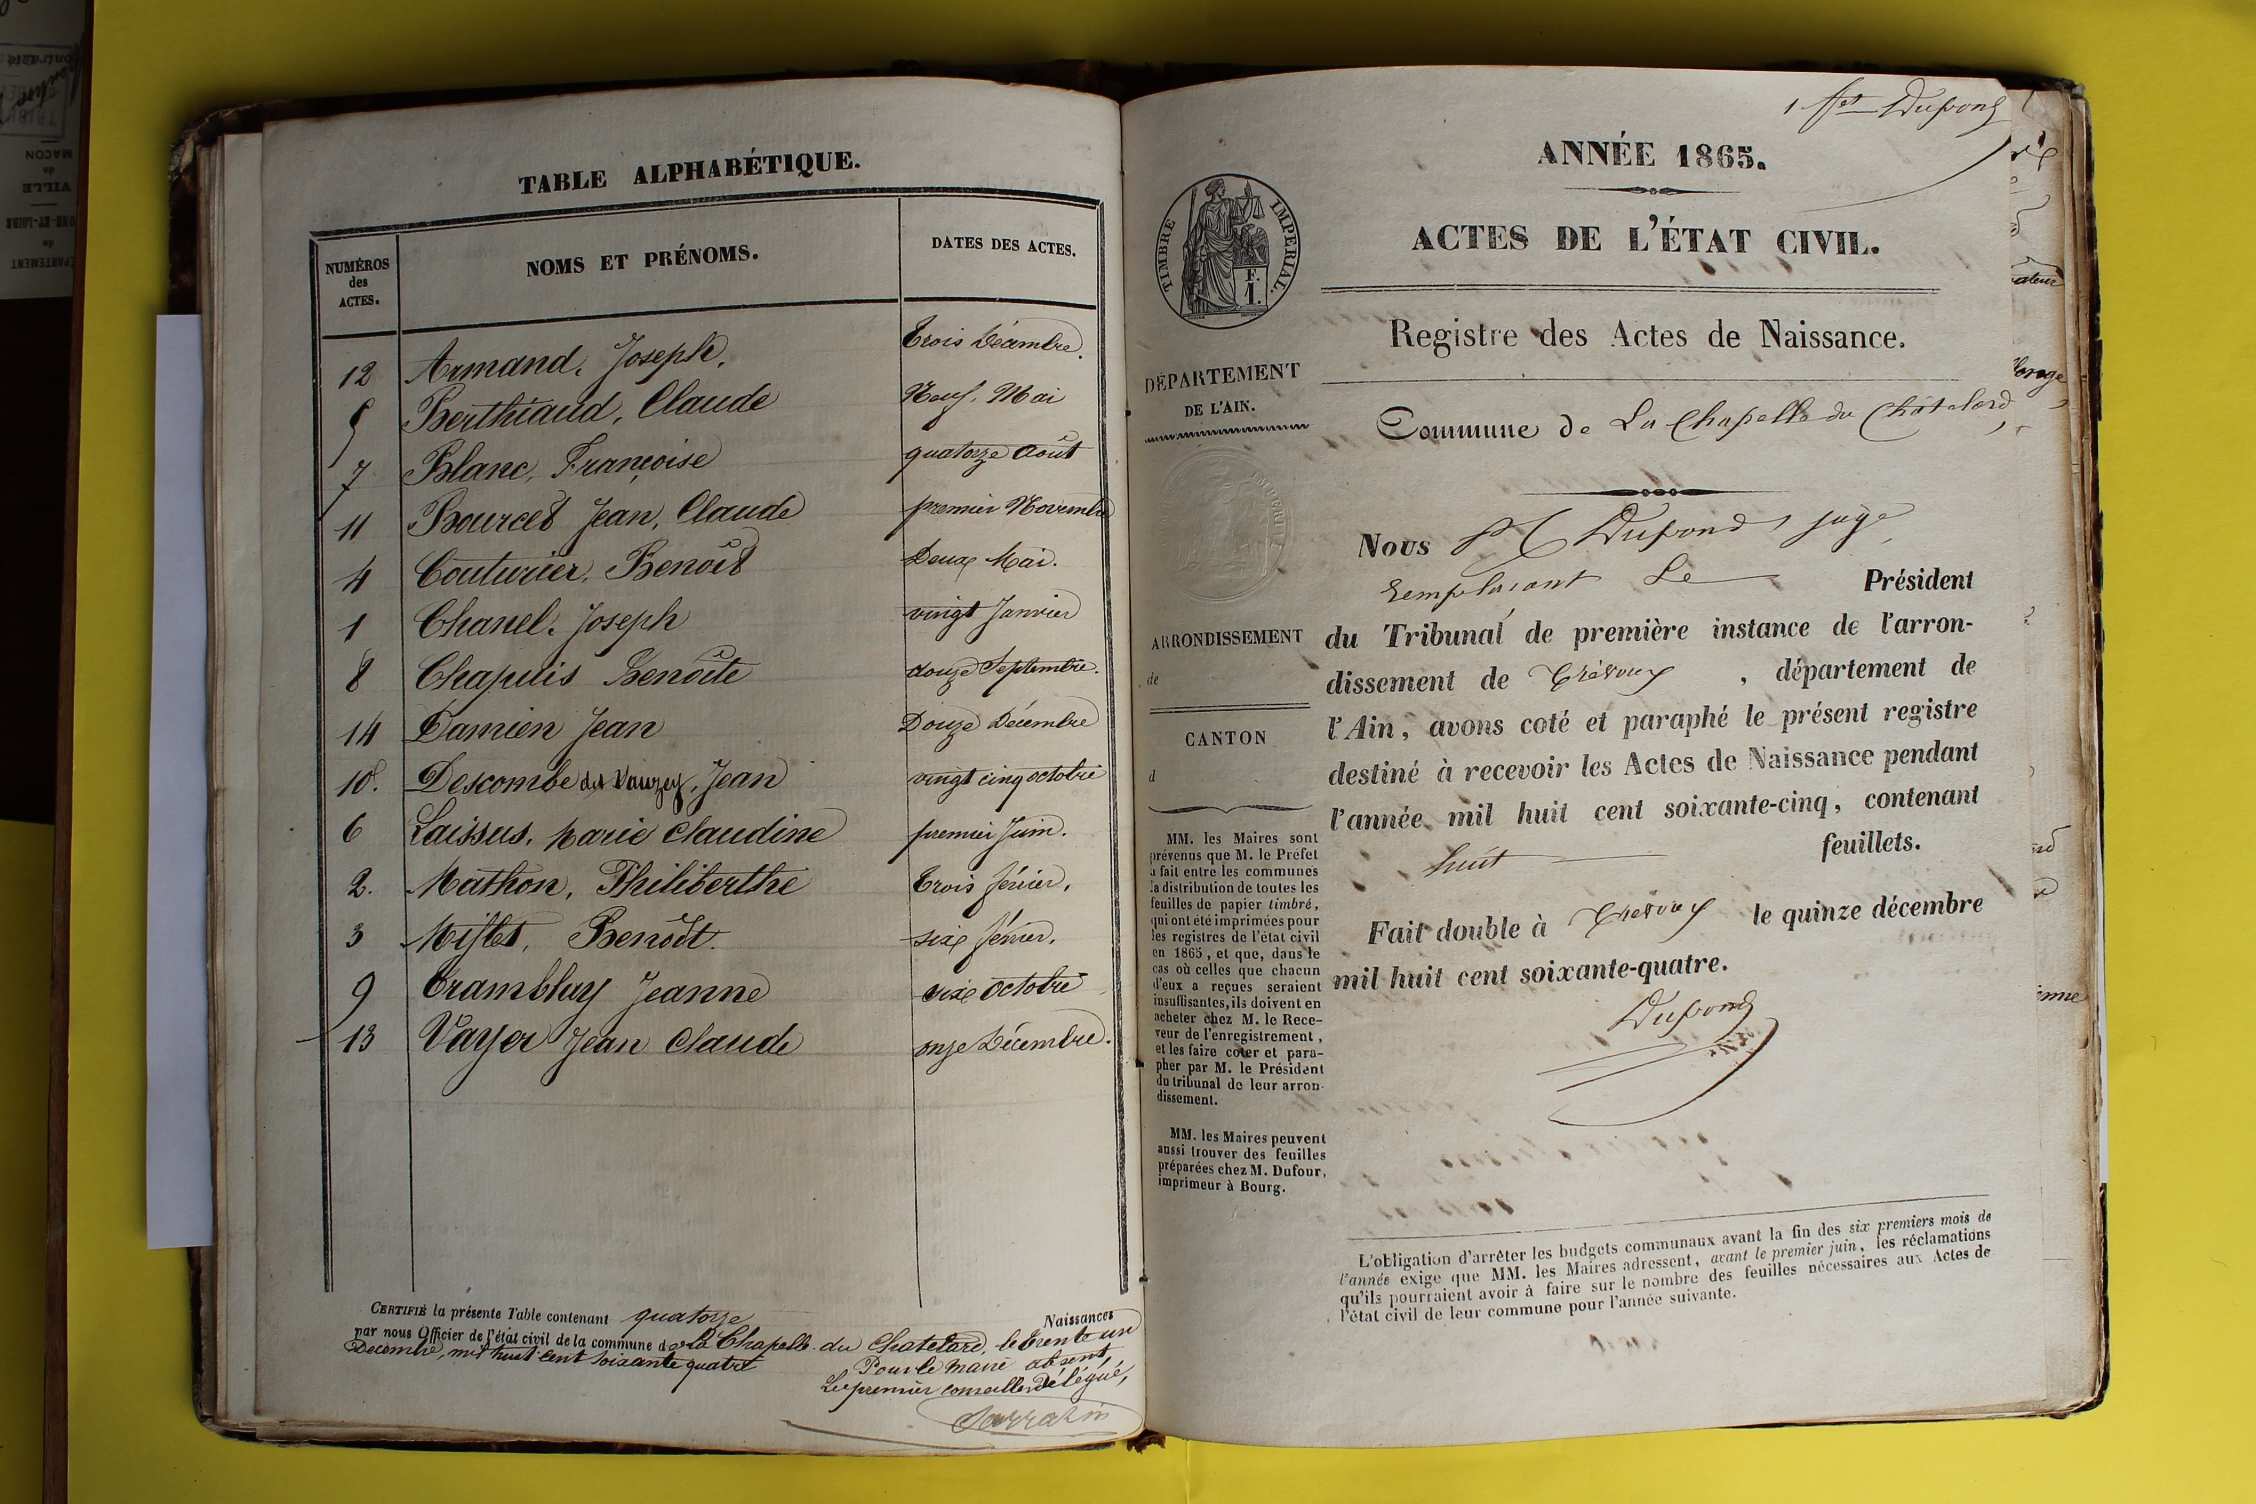 TABLE ALPHABÉTIQUE.
NUMÉROS des ACTES.
NOMS ET PRÉNOMS.
DATES DES ACTES.
12 Armand, Joseph, Trois Décembre.
5 Berthiaud, Claude Neuf. Mai
7 Blanc, Françoise quatorze août
11 Bourcet Jean, Claude premier Novembre
4 Couturier, Benoît Deux Mai.
1 Chanel, Joseph vingt Janvier
8 Chapuis Benoîte douze Septembre.
14 Damien Jean Douze Décembre
10. Descombe des Vauzey, Jean vingt cinq octobre
6 Laissus, Marie Claudine premier Juin.
2. Mathon, Philiberthe Trois février,
3 Miflet, Benoît. six février,
9 Tramblay Jeanne six octobre
13 Vayer Jean Claude onze Décembre.
CERTIFIÉ la présente Table contenant quatorze Naissances
par nous Officier de l'état civil de la commune de La Chapelle du Chatelard, le trente un
Décembre, mil huit cent soixante quatre
Pour le maire absent,
Le premier conseiller Délégué,
Sarrazin
1 fet Dupond
ANNÉE 1865.
ACTES DE L'ÉTAT CIVIL.
TIMBRE IMPERIAL.
F.
1.
Registre des Actes de Naissance.
DÉPARTEMENT
DE L'AIN.
Commune de La Chapelle du Châtelard,
Nous Dupond juge
remplacant Le Président
du Tribunal de première instance de l'arron-
dissement de Trévoux, département de
l'Ain, avons coté et paraphé le présent registre
destiné à recevoir les Actes de Naissance pendant
l'année mil huit cent soixante-cinq, contenant
huit feuillets.
Fait double à Trévoux le quinze décembre
mil huit cent soixante-quatre.
Dupond
ARRONDISSEMENT
de
CANTON
d
MM. les Maires sont
prévenus que M. le Préfet
a fait entre les communes
la distribution de toutes les
feuilles de papier timbré,
qui ont été imprimées pour
les registres de l'état civil
en 1865, et que, dans le
cas où celles que chacun
d'eux a reçues seraient
insuffisantes, ils doivent en
acheter chez M. le Rece-
veur de l'enregistrement,
et les faire coter et para-
pher par M. le Président
du tribunal de leur arron-
dissement.
MM. les Maires peuvent
aussi trouver des feuilles
préparées chez M. Dufour,
imprimeur à Bourg.
L'obligation d'arrêter les budgets communaux avant la fin des six premiers mois de
l'année exige que MM. les Maires adressent, avant le premier juin, les réclamations
qu'ils pourraient avoir à faire sur le nombre des feuilles nécessaires aux Actes de
l'état civil de leur commune pour l'année suivante.